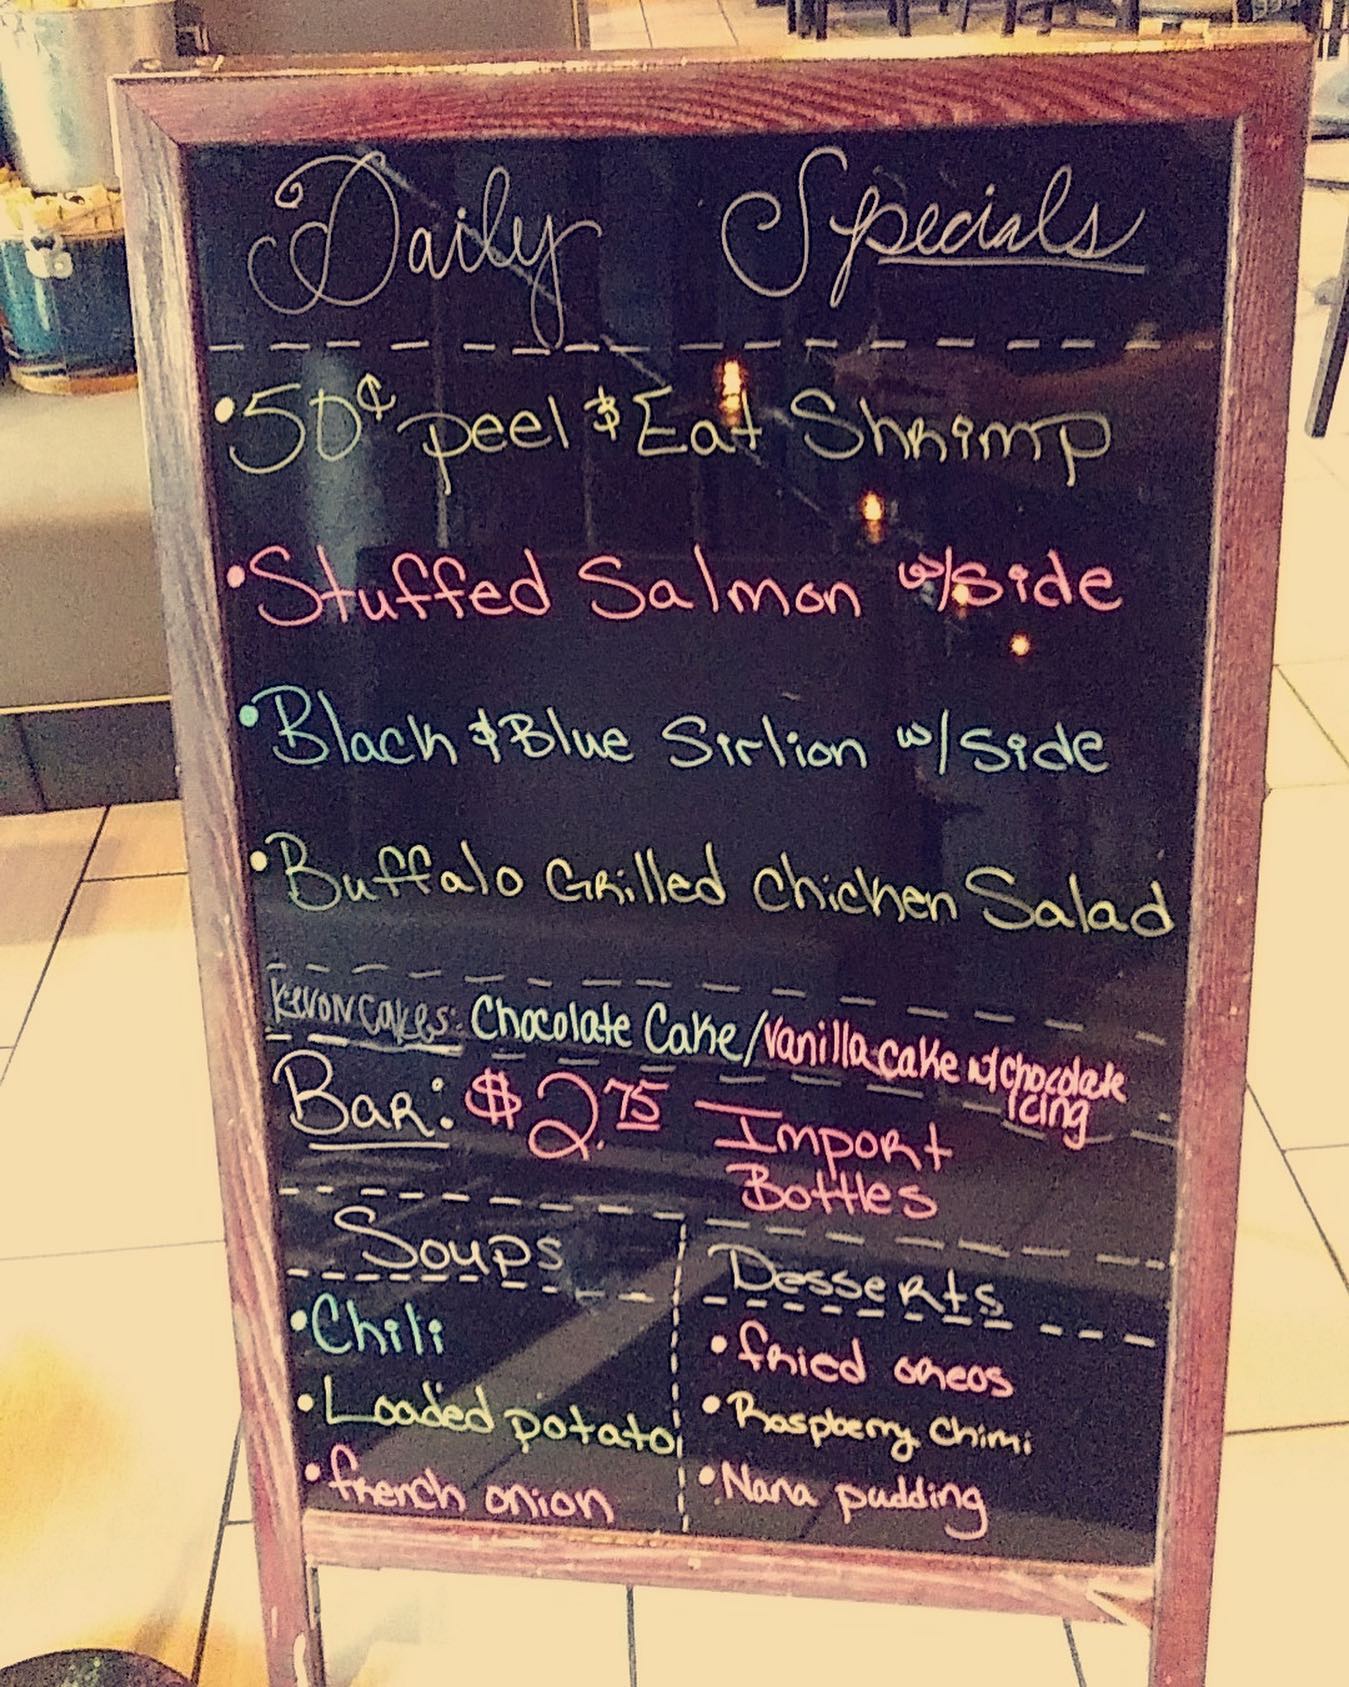 Daily Specials
• 50¢ peel & Eat Shrimp
• Stuffed Salmon w/side
• Black & Blue Sirlion w/ side
• Buffalo Grilled Chicken Salad
KevonCakes: Chocolate Cake/Vanilla cake w/ chocolate
Icing
Bar: $2.75 — Import
Bottles
Soups
• Chili
• Loaded potato
• french onion
Desserts
• fried oreos
• Raspberry Chimi
• Nana pudding